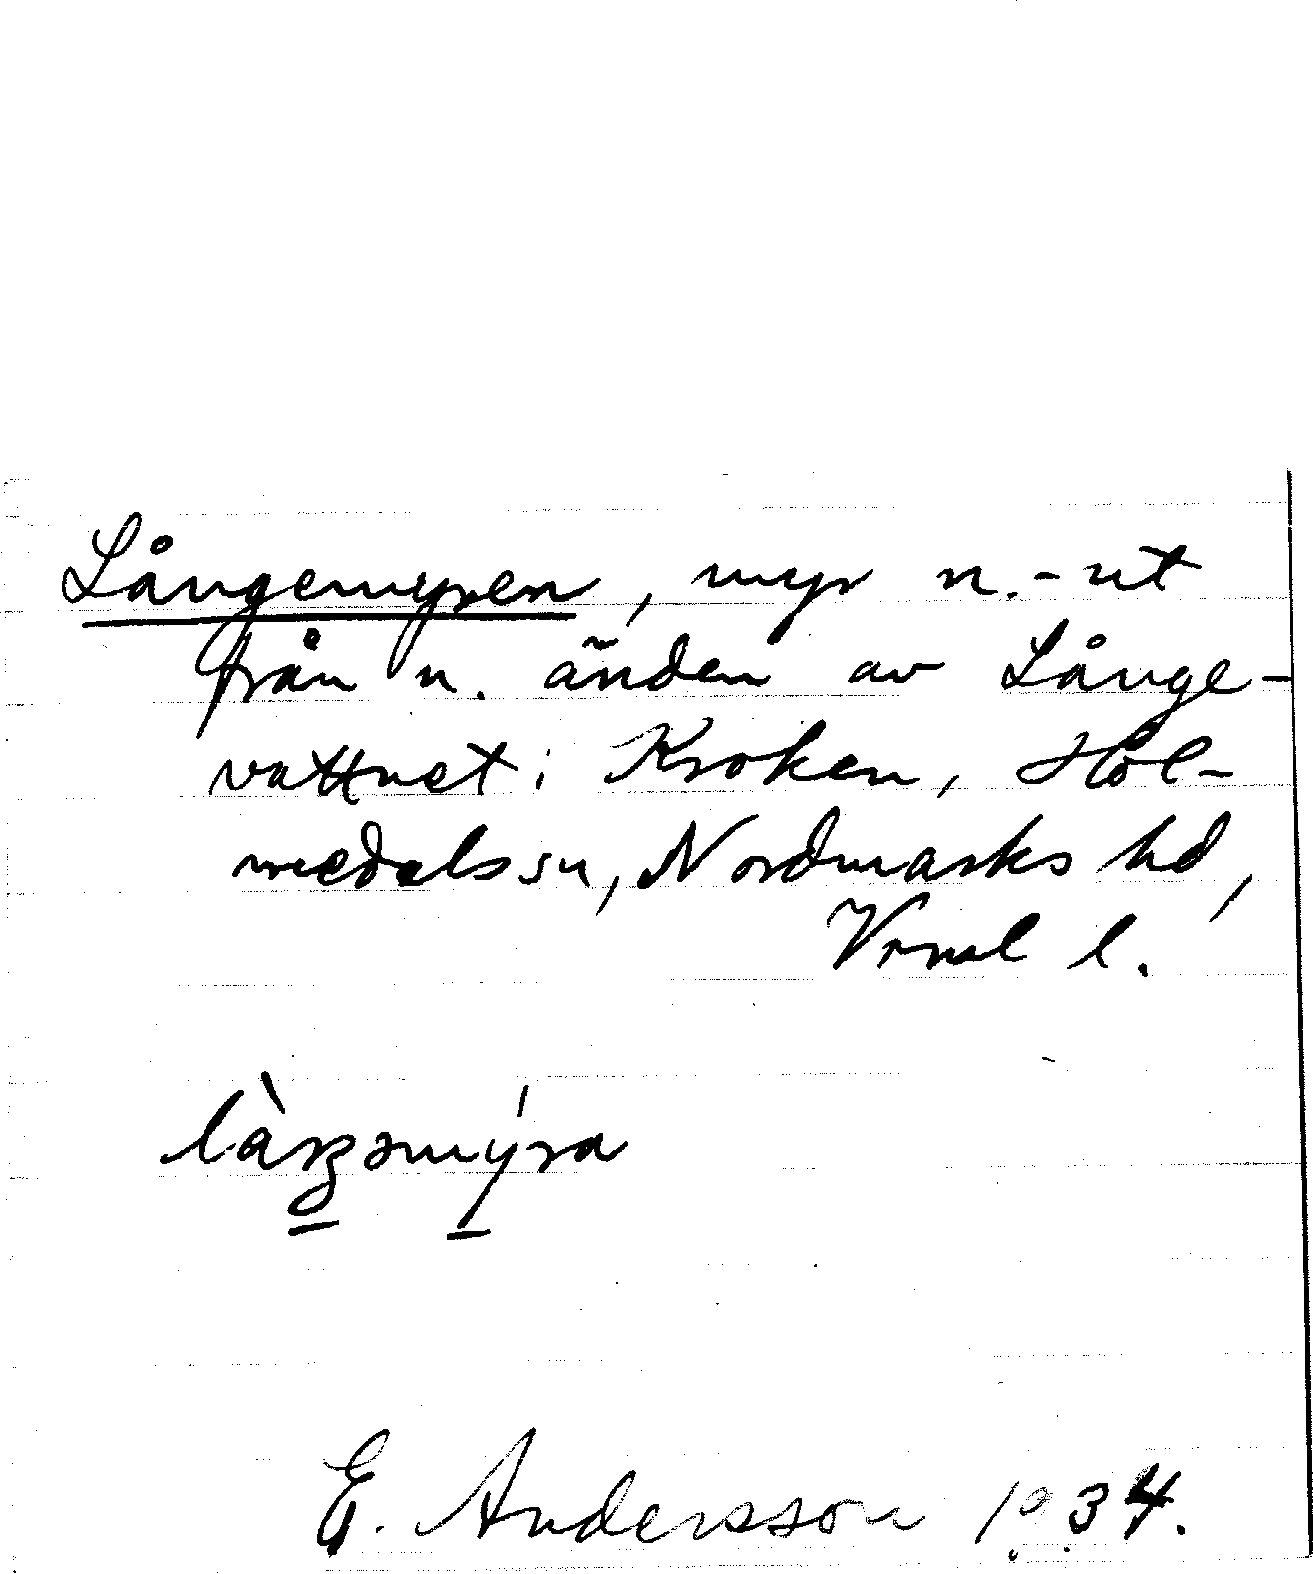 Långemyren, myr n.-ut
från n. änden av Långe-
vattnet i Kroken, Hol-
medalssn, Nordmarks hd,
Vrml l.
E. Andersson 1934.